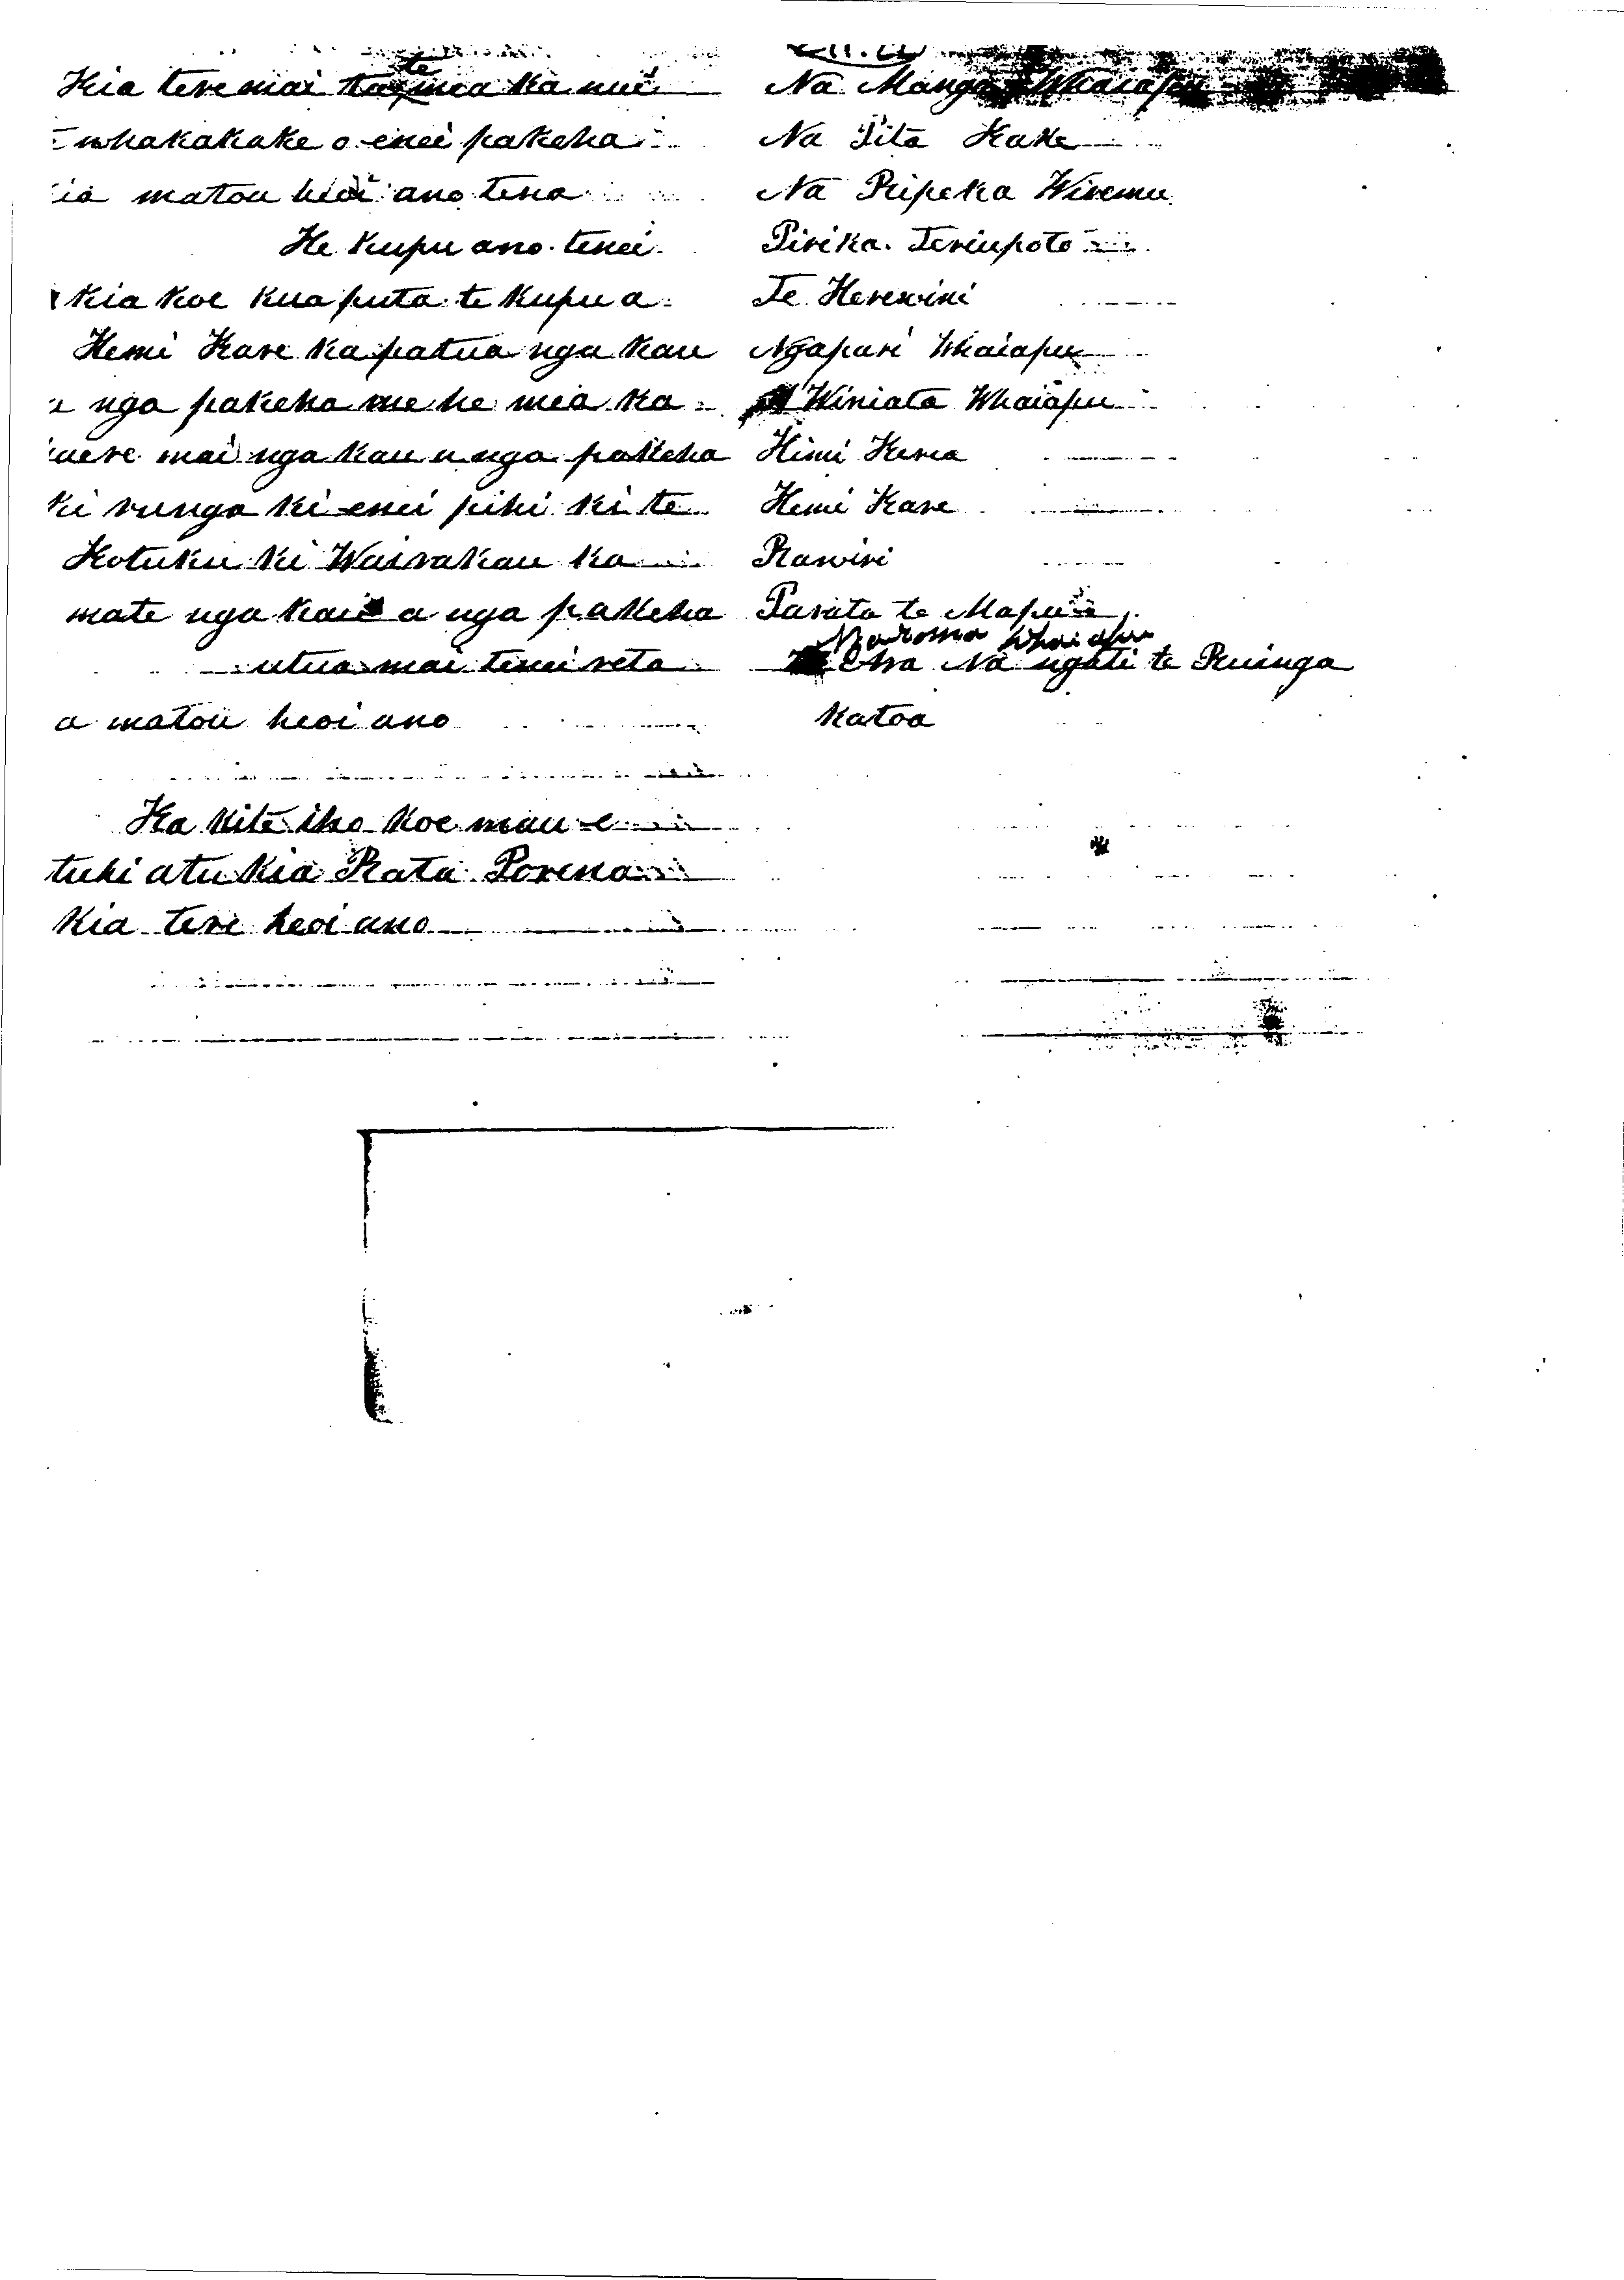 Kia tere mai te mea ka nui
whakakake o enei pakeha
ia matou heoi ano tena
He kupu ano tenei
Kia koe kua puta te kupu a
Hemi Kare ka patua nga kau
a nga pakeha me he mea ka
aere mai nga kau a nga pakeha
ki runga ki enei pihi ki te
Kotuku ki Wairakau ka
mate nga kau a nga pakeha
utua mai tenei reta
a matou heoi ano
Ka kite iho koe mau e
tuhi atu kia Rata Porena
Kia tere heoi ano
Na Manga Whaiapu
Na Pita Kake
Na Ripeka Wiremu
Pirika. Teriupoto
Te Herewini
Ngapari Whaiapu
Winiata Whaiapu
Himi Keria
Hemi Kare
Rawiri
Parata te Mapu
Naroma Whaiapu
Ara Na ngati te Ruinga
Katoa